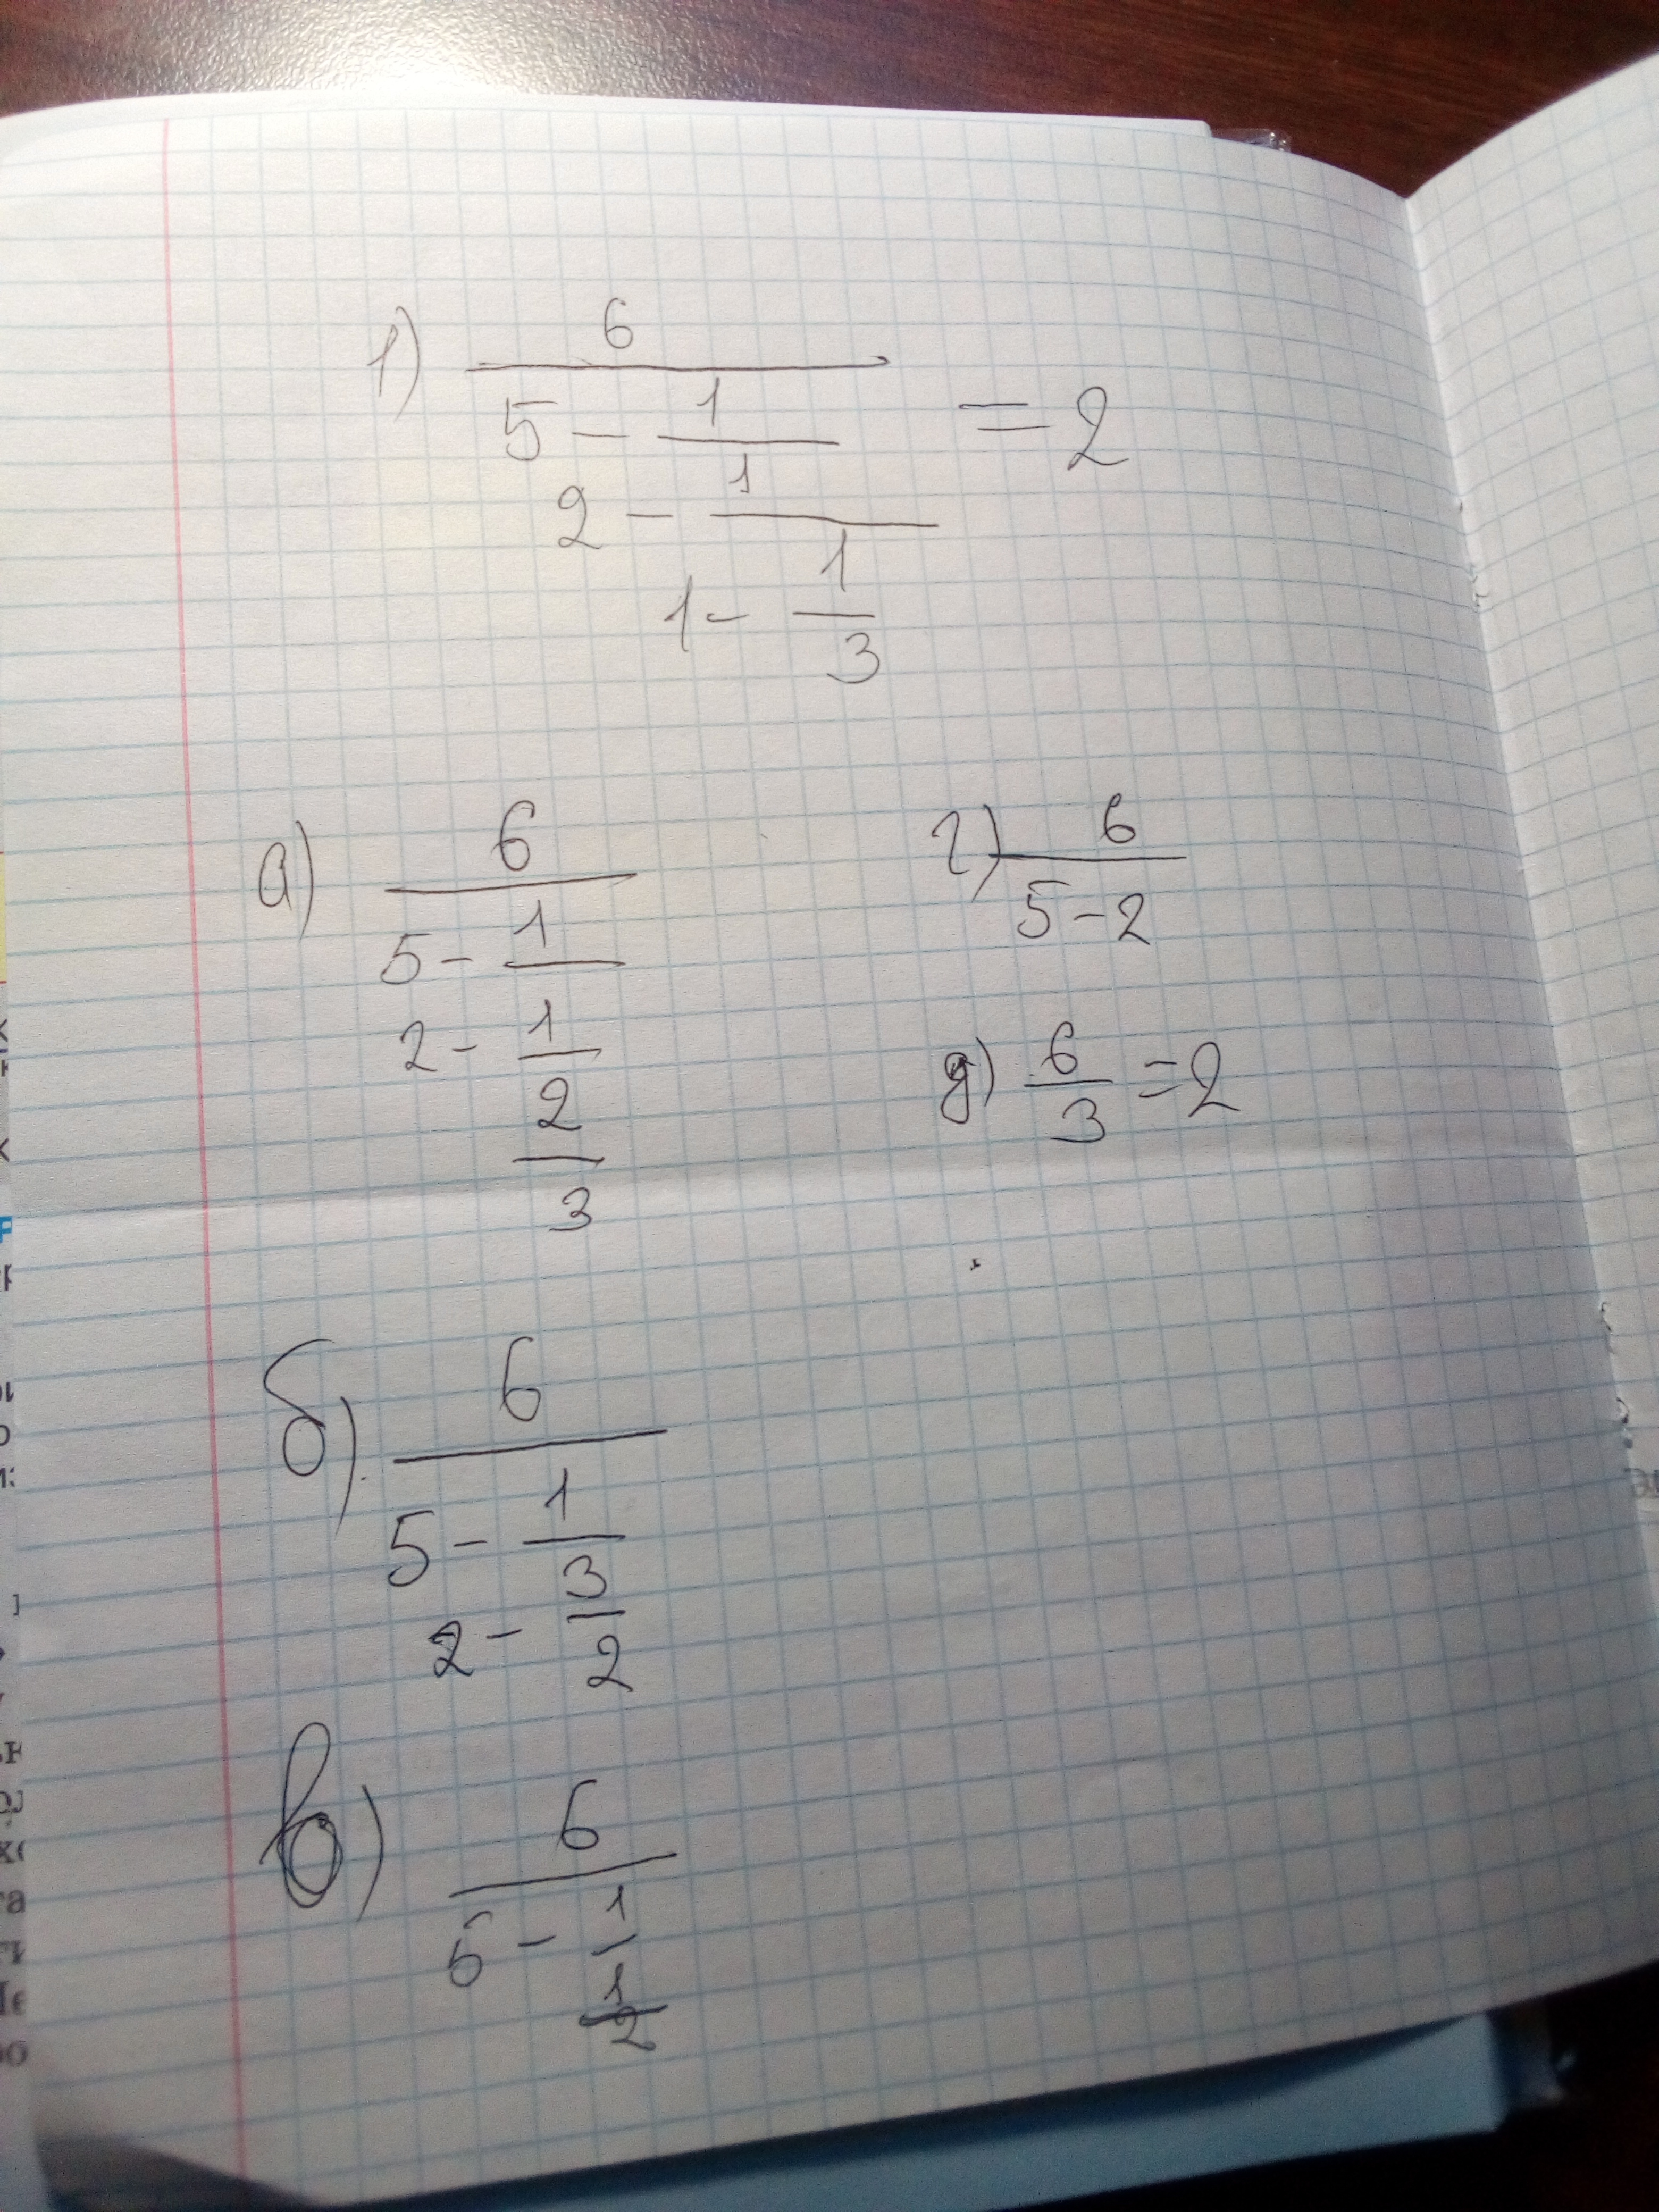 1) 6
5 - 1 = 2
2 - 1
1 - 1
3
а) 6
5 - 1
2 - 1
2
3
б) 6
5 - 1
3
2 -
2
в) 6
5 - 1
1
2
г) 6
5 - 2
д) 6 = 2
3